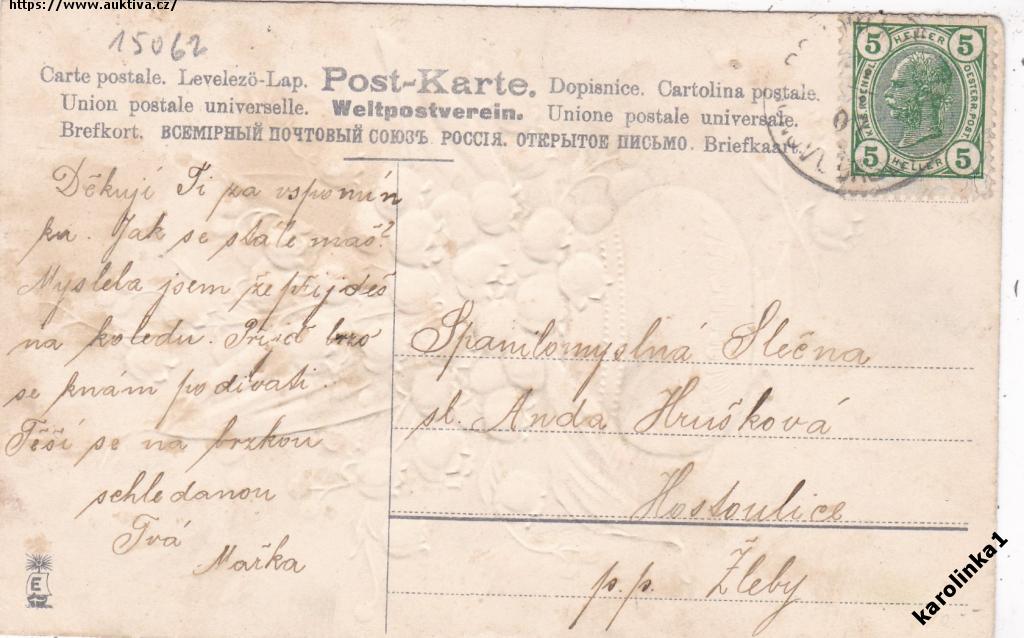 https://www.auktiva.cz/
15062
Carte postale. Levelező-Lap. Post-Karte. Dopisnice. Cartolina postale.
Union postale universelle. Weltpostverein. Unione postale universale.
Brefkort. ВСЕМІРНЫЙ ПОЧТОВЫЙ СОЮЗЪ. РОССІЯ. ОТКРЫТОЕ ПИСЬМО. Briefkaart.
5 HELLER 5
KAIS. KOENIGL. OESTERR. POST.
5 HELLER 5
Děkuji Ti za vspomín
ku. Jak se stále máš?
Myslela jsem že přijdeš
na koledu. Přijď brzo
se knám podívati.
Těší se na brzkou
schledanou
Tvá
Mařka
Spanilomyslná Slečna
sl. Anda Hrušková
Hostoulice
p.p. Žleby
E
karolinka1